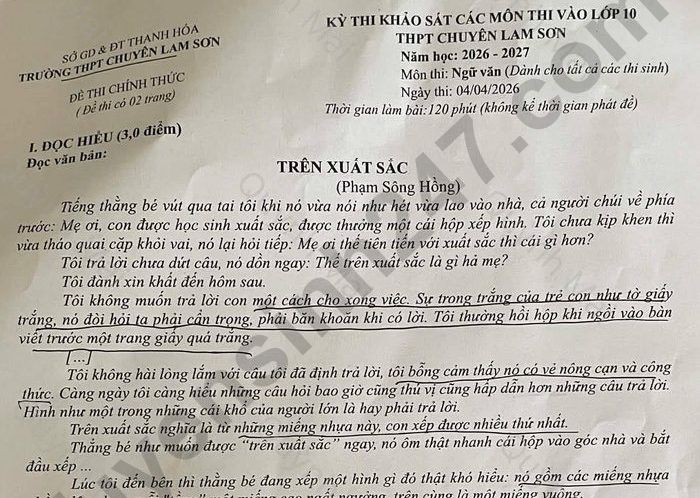 SỞ GD & ĐT THANH HÓA
TRƯỜNG THPT CHUYÊN LAM SƠN
ĐỀ THI CHÍNH THỨC
( Đề thi có 02 trang)
KỲ THI KHẢO SÁT CÁC MÔN THI VÀO LỚP 10
THPT CHUYÊN LAM SƠN
Năm học: 2026 - 2027
Môn thi: Ngữ văn (Dành cho tất cả các thí sinh)
Ngày thi: 04/04/2026
Thời gian làm bài:120 phút (không kể thời gian phát đề)
I. ĐỌC HIỂU (3,0 điểm)
Đọc văn bản:
TRÊN XUẤT SẮC
(Phạm Sông Hồng)
Tiếng thằng bé vút qua tai tôi khi nó vừa nói như hét vừa lao vào nhà, cả người chúi về phía
trước: Mẹ ơi, con được học sinh xuất sắc, được thưởng một cái hộp xếp hình. Tôi chưa kịp khen thì
vừa tháo quai cặp khỏi vai, nó lại hỏi tiếp: Mẹ ơi thế tiên tiến với xuất sắc thì cái gì hơn?
Tôi trả lời chưa dứt câu, nó dồn ngay: Thế trên xuất sắc là gì hả mẹ?
Tôi đành xin khất đến hôm sau.
Tôi không muốn trả lời con một cách cho xong việc. Sự trong trắng của trẻ con như tờ giấy
trắng, nó đòi hỏi ta phải cẩn trọng, phải băn khoăn khi có lời. Tôi thường hồi hộp khi ngồi vào bàn
viết trước một trang giấy quá trắng.
[...]
Tôi không hài lòng lắm với câu tôi đã định trả lời, tôi bỗng cảm thấy nó có vẻ nóng cạn và công
thức. Càng ngày tôi càng hiểu những câu hỏi bao giờ cũng thú vị cũng hấp dẫn hơn những câu trả lời.
Hình như một trong những cái khổ của người lớn là hay phải trả lời.
Trên xuất sắc nghĩa là từ những miếng nhựa này, con xếp được nhiều thứ nhất.
Thằng bé như muốn được "trên xuất sắc" ngay, nó ôm thật nhanh cái hộp vào góc nhà và bắt
đầu xếp ...
Lúc tôi đến bên thì thằng bé đang xếp một hình gì đó thật khó hiểu: nó gồm các miếng nhựa
một miếng cao ngất ngưởng, trên cùng là một miếng vuông.
tuyensinh247.com